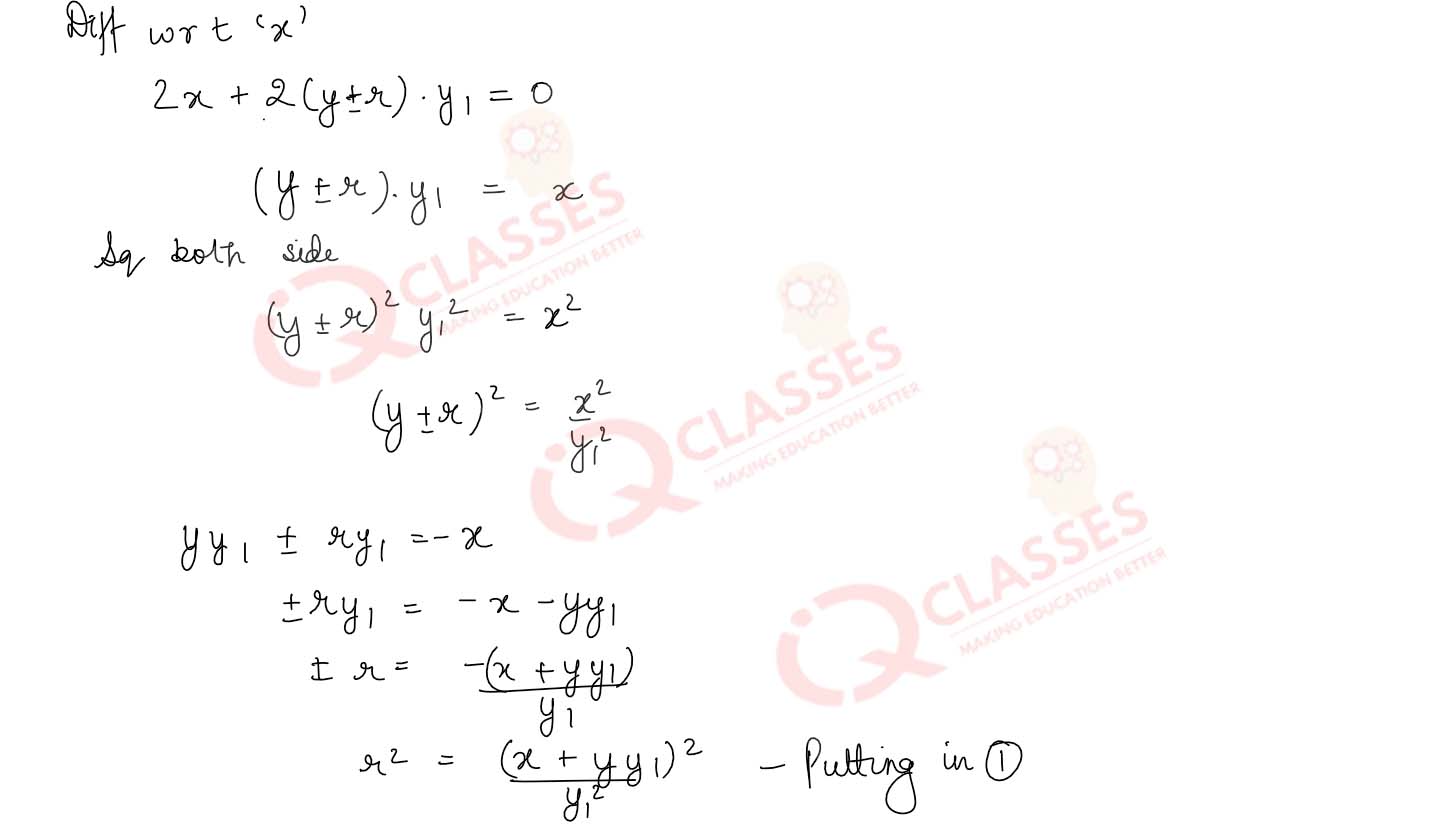 Diff wrt 'x'
2x + 2(y ± r) · y₁ = 0
(y ± r) · y₁ = x
Sq both side
(y ± r)² y₁² = x²
(y ± r)² = x²/y₁²
yy₁ ± ry₁ = - x
± ry₁ = - x - yy₁
± r = -(x + yy₁)/y₁
r² = (x + yy₁)²/y₁² - Putting in ①
iQ CLASSES
MAKING EDUCATION BETTER
iQ CLASSES
MAKING EDUCATION BETTER
iQ CLASSES
MAKING EDUCATION BETTER